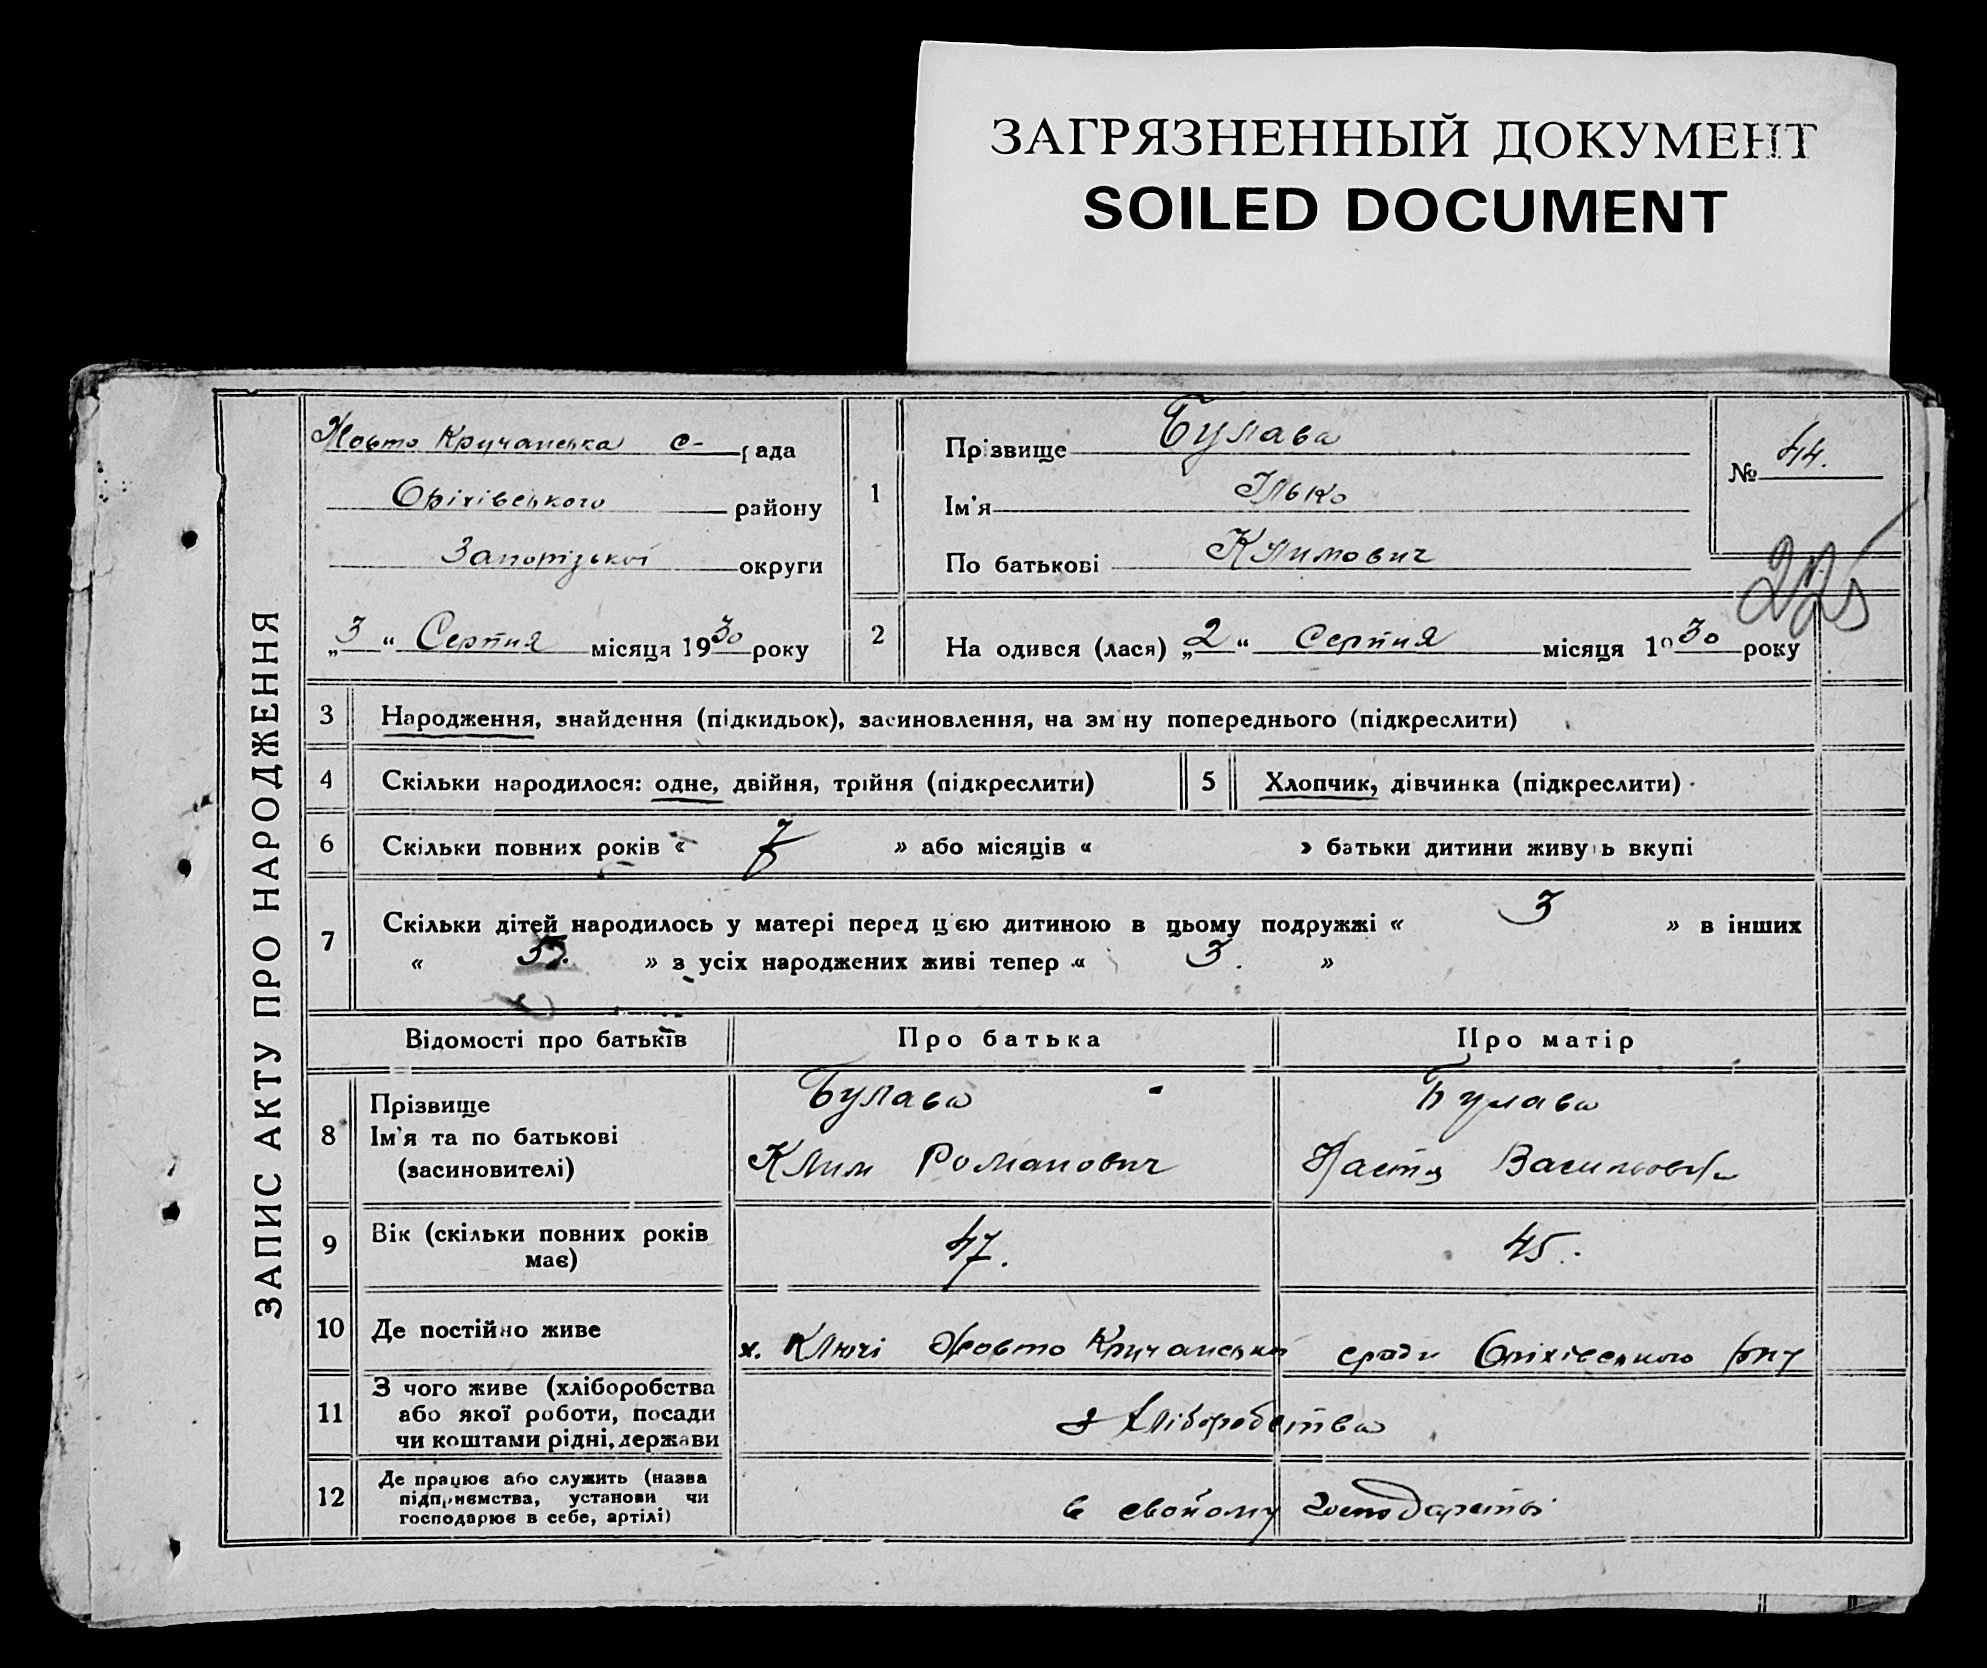 ЗАГРЯЗНЕННЫЙ ДОКУМЕНТ
SOILED DOCUMENT
ЗАПИС АКТУ ПРО НАРОДЖЕННЯ
Жовто Кручанська с- рада
Оріхівського району
Запорізької округи
„3“ Серпня місяця 1930 року
1
Прізвище Булава
Ім'я Ілько
По батькові Климович
№ 44.
225
2
На одився (лася) „2“ Серпня місяця 1930 року
3 Народження, знайдення (підкидьок), засиновлення, на зміну попереднього (підкреслити)
4 Скільки народилося: одне, двійня, трійня (підкреслити)
5 Хлопчик, дівчинка (підкреслити)
6 Скільки повних років « 7 » або місяців « » батьки дитини живуть вкупі
7 Скільки дітей народилось у матері перед цією дитиною в цьому подружжі « 3 » в інших
« » з усіх народжених живі тепер « 3. »
Відомості про батьків Про батька Про матір
8 Прізвище Булава Булава
Ім'я та по батькові
(засиновителі) Клим Романович Настя Василь
9 Вік (скільки повних років
має) 47. 45.
10 Де постійно живе х. Ключі Жовто Кручанської сради Оріхівського р-ну
11 З чого живе (хліборобства
або якої роботи, посади
чи коштами рідні, держави з хліборобства
12 Де працює або служить (назва
підприємства, установи чи
господарює в себе, артілі) в свойому господарстві